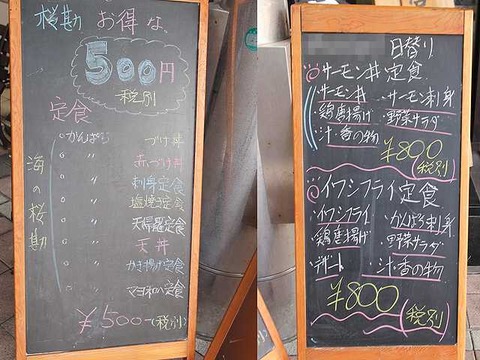 桜勘 お得な
500円
税別
定食
海の桜勘
○かんぱち づけ丼
○ 〃 赤づけ丼
○ 〃 刺身定食
○ 〃 塩焼き定食
○ 〃 天婦羅定食
○ 〃 天丼
○ 〃 かき揚げ定食
○ 〃 定食
¥500-(税別)
日替り
◎サーモン丼定食
・サーモン丼 ・サーモン刺身
・鶏唐揚げ ・野菜サラダ
・汁・香の物
¥800(税別)
◎イワシフライ定食
・イワシフライ ・かんぱち刺身
・鶏唐揚げ ・野菜サラダ
・デザート ・汁・香の物
¥800(税別)